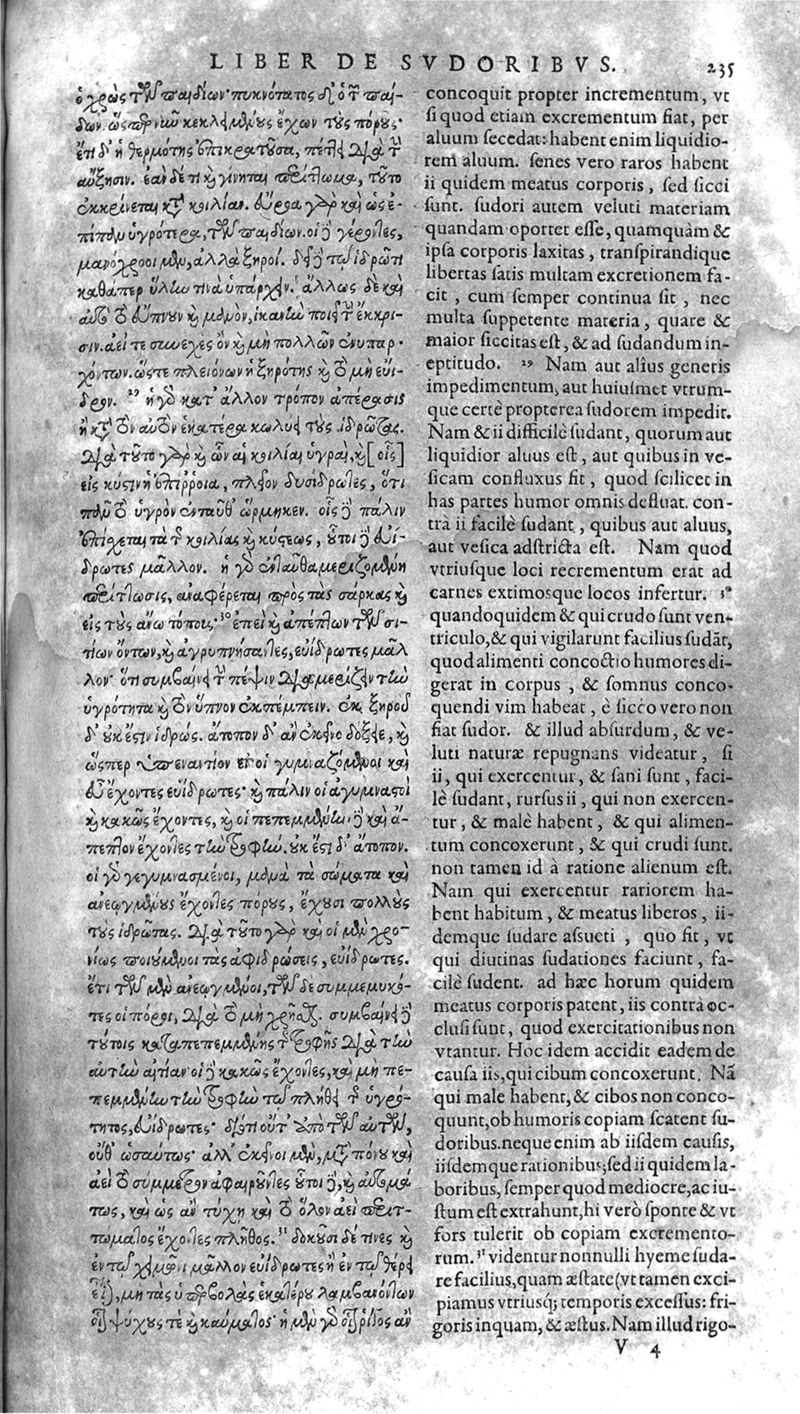 LIBER DE SVDORIBVS. 235
ὁ χρὼς τῶν παιδίων· πυκνότατος δὲ ὁ τῶν παί-
δων. ὥσπερ νῦν κεκλεμμένους ἔχων τοὺς πόρους·
ἔτι δ' ἡ θερμότης ἐπικρατοῦσα, πέττει διὰ τὴν
αὔξησιν. ἐὰν δέ τι καὶ γίνηται περίττωμα, τοῦτο
ἐκκρίνεται κατὰ κοιλίαν. εὔροα γὰρ καὶ ὡς ἐ-
πίπολυ ὑγρότερα, τῶν παιδίων. οἱ δὲ γέροντες,
μανόχροοι μὲν, ἀλλὰ ξηροί. δεῖ δὲ τῷ ἱδρῶτι
καθάπερ ὕλην τινὰ ὑπάρχειν. ἄλλως δὲ καὶ
αὐτὸ τὸ εὔπνουν καὶ μανὸν, ἱκανὴν ποιεῖ τὴν ἔκκρι-
σιν. ἀεί τε συνεχὲς ὂν καὶ μὴ πολλῶν ἐνυπαρ-
χόντων. ὥστε πλειόνων ἡ ξηρότης καὶ τὸ μὴ εὐί-
δρουν. 29 ἡ γὰρ κατ' ἄλλον τρόπον ἀπέρασις
ἢ κατὰ τὸν αὐτὸν ἑκατέρα κωλύει τοὺς ἱδρῶτας.
διὰ τοῦτο γὰρ καὶ ὧν αἱ κοιλίαι ὑγραὶ, καὶ [οἷς]
εἰς κύστιν ἡ ἐπίρροια, πλεῖον δυσιδρῶτες, ὅτι
πᾶν τὸ ὑγρὸν ἐνταῦθ' ὥρμηκεν. οἷς δὲ πάλιν
ἐπέχεται τὰ τῆς κοιλίας καὶ κύστεως, οὗτοι δὲ εὐί-
δρωτες μᾶλλον. ἡ γὰρ ἐνταῦθα μεριζομένη
περίττωσις, ἀναφέρεται πρὸς τὰς σάρκας καὶ
εἰς τοὺς ἄνω τόπους. 30 ἐπεὶ καὶ ἀπέπτων τῶν σι-
τίων ὄντων, καὶ ἀγρυπνήσαντες, εὐίδρωτες μᾶλ
λον· ὅτι συμβαίνει τὴν πέψιν διαμερίζειν τὴν
ὑγρότητα καὶ τὸν ὕπνον ἐκπέμπειν. ἐκ ξηροῦ
δ' οὐκ ἔστιν ἱδρώς. ἄτοπον δ' ἂν ἐκεῖνο δόξειε, καὶ
ὥσπερ ὑπεναντίον εἰ οἱ γυμναζόμενοι καὶ
εὖ ἔχοντες εὐίδρωτες· καὶ πάλιν οἱ ἀγύμναστοι
καὶ κακῶς ἔχοντες, καὶ οἱ πεπεμμένην· δὲ καὶ ἄ-
πεπτον ἔχοντες τὴν τροφήν. οὐκ ἔστι δ' ἄτοπον.
οἱ γὰρ γεγυμνασμένοι, μανὰ τὰ σώματα καὶ
ἀνεωγμένους ἔχοντες πόρους, ἔχουσι πολλοὺς
τοὺς ἱδρῶτας. διὰ τοῦτο γὰρ καὶ οἱ μὲν χρο-
νίως ποιούμενοι τὰς ἀφιδρώσεις, εὐίδρωτες.
ἔτι τῶν μὲν ἀνεωγμένοι, τῶν δὲ συμμεμυκό-
τες οἱ πόροι, διὰ τὸ μὴ χρῆσθαι. συμβαίνει δὲ
τούτοις καταπεπεμμένης τῆς τροφῆς διὰ τὴν
αὐτὴν αἰτίαν· οἱ δὲ κακῶς ἔχοντες, καὶ μὴ πε-
πεμμένην τὴν τροφὴν τῷ πλήθει τῆς ὑγρό-
τητος, εὐίδρωτες· διότι οὔτ' ἀπὸ τῶν αὐτῶν,
οὔθ' ὡσαύτως· ἀλλ' ἐκεῖνοι μὲν, μετὰ πόνου καὶ
ἀεὶ τὸ σύμμετρον ἀφαιροῦντες οὗτοι δὲ, καὶ αὐτομά
τως, καὶ ὡς ἂν τύχῃ καὶ τὸ ὅλον ἀεὶ περιτ-
τώματος ἔχοντες πλῆθος. 31 δοκοῦσι δέ τινες καὶ
ἐν τῷ χειμῶνι μᾶλλον εὐίδρωτες ἢ ἐν τῷ θέρει
εἶναι, μὴ τὰς ὑπερβολὰς ἑκατέρου λαμβανόντων
τοῦ ψύχους τε καὶ καύματος· ἡ μὲν γὰρ τοῦ ῥίγους ἂν
concoquit propter incrementum, vt
si quod etiam excrementum fiat, per
aluum secedat: habent enim liquidio-
rem aluum. senes vero raros habent
ii quidem meatus corporis, sed sicci
sunt. sudori autem veluti materiam
quandam oportet esse, quamquàm &
ipsa corporis laxitas, transpirandique
libertas satis multam excretionem fa-
cit, cum semper continua sit, nec
multa suppetente materia, quare &
maior siccitas est, & ad sudandum in-
eptitudo. 29 Nam aut alius generis
impedimentum, aut huiusmet vtrum-
que certè propterea sudorem impedit.
Nam & ii difficilè sudant, quorum aut
liquidior aluus est, aut quibus in ve-
sicam confluxus fit, quod scilicet in
has partes humor omnis defluat. con-
trà ii facilè sudant, quibus aut aluus,
aut vesica adstricta est. Nam quod
vtriusque loci recrementum erat ad
carnes extimosque locos infertur. 30
quandoquidem & qui crudo sunt ven-
triculo, & qui vigilarunt facilius sudāt,
quod alimenti concoctio humores di-
gerat in corpus, & somnus conco-
quendi vim habeat, è sicco vero non
fiat sudor. & illud absurdum, & ve-
luti naturæ repugnans videatur, si
ii, qui exercentur, & sani sunt, faci-
lè sudant, rursus ii, qui non exercen-
tur, & malè habent, & qui alimen-
tum concoxerunt, & qui crudi sunt.
non tamen id à ratione alienum est.
Nam qui exercentur rariorem ha-
bent habitum, & meatus liberos, ii-
demque sudare assueti, quo fit, vt
qui diutinas sudationes faciunt, fa-
cilè sudent. ad hæc horum quidem
meatus corporis patent, iis contrà oc-
clusi sunt, quod exercitationibus non
vtantur. Hoc idem accidit eadem de
causa iis, qui cibum concoxerunt. Nā
qui male habent, & cibos non conco-
quunt, ob humoris copiam scatent su-
doribus. neque enim ab iisdem causis,
iisdemque rationibus; sed ii quidem la-
boribus, semper quod mediocre, ac iu-
stum est extrahunt, hi verò sponte & vt
fors tulerit ob copiam excremento-
rum. 31 videntur nonnulli hyeme suda-
re facilius, quam æstate (vt tamen exci-
piamus vtriusq; temporis excessus: fri-
goris inquam, & æstus. Nam illud rigo-
V 4